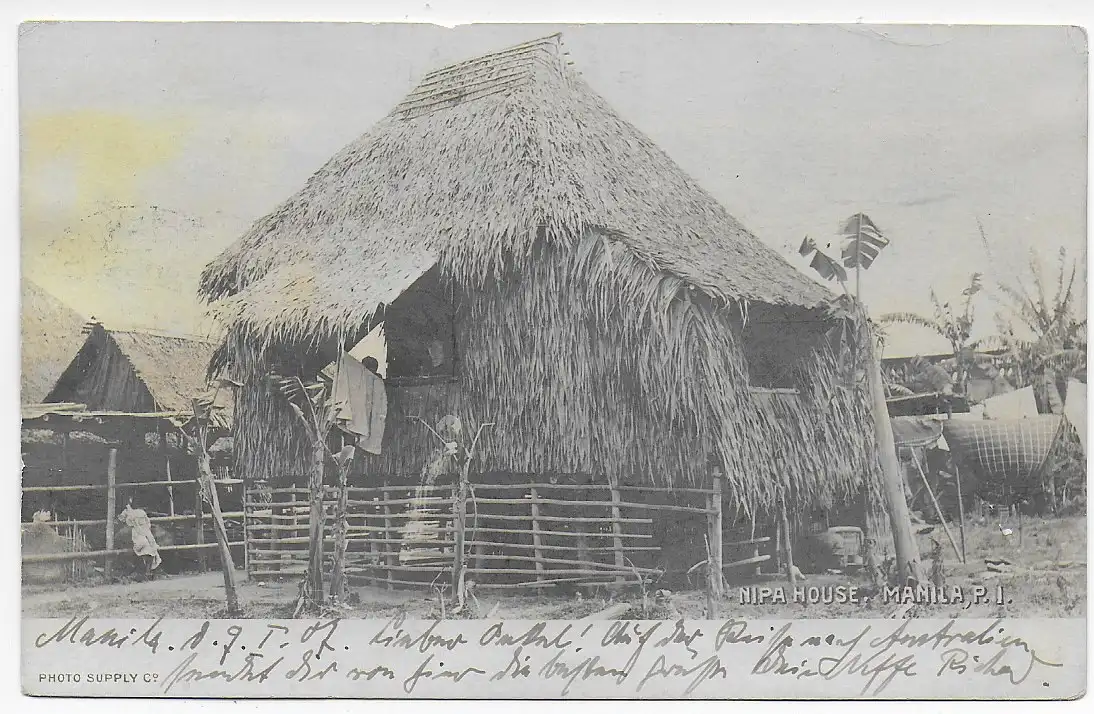 NIPA HOUSE. MANILA, P.I.
Manila. d. 9. I. 07. Lieber Onkel! Auf der Reise nach Australien
PHOTO SUPPLY Co
sendet dir von hier die besten Grüsse Dein Neffe Richard.